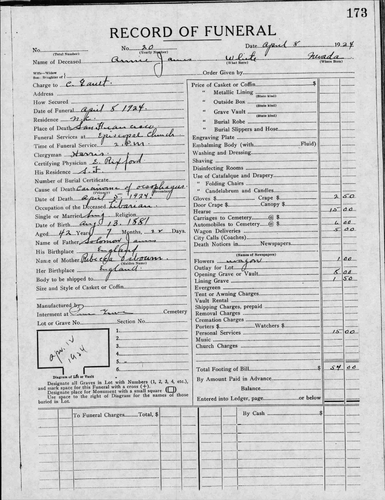 173
RECORD OF FUNERAL
No.
(Total Number)
No. 20
(Yearly Number)
Date April 8 1924
Name of Deceased Annie James White Nevada
(What Race) (Where Born)
Order Given by
Charge to C. Gault
Address
How Secured
Date of Funeral April 8 1924.
Residence
Place of Death San Francisco
Funeral Services at Episcopal Church
Time of Funeral Service 2 P.M.
Clergyman Harris
Certifying Physician E. Rixford
His Residence S.F.
Number of Burial Certificate
Cause of Death Carcinoma of esophagus
Date of Death April 5, 1924
Occupation of the Deceased Librarian
Single or Married Sing Religion
Date of Birth Aug 13, 1881
Aged 42 Years 7 Months 22 Days
Name of Father Solomon James
His Birthplace England
Name of Mother Rebecca Osborn
(Maiden Name)
Her Birthplace England
Body to be shipped to
Size and Style of Casket or Coffin
Manufactured by
Interment at Cemetery
Lot or Grave No. Section No.
1.
2.
3.
4.
5.
6.
Apr. 12 1924
Diagram of Lot or Vault
Designate all Graves in Lot with Numbers (1, 2, 3, 4, etc.), and mark space for this Funeral with a cross (+).
Designate place for Monument with a small square
Use space to right of Diagram for the names of those buried in Lot.
Price of Casket or Coffin
" Metallic Lining
(State Kind)
" Outside Box
(State Kind)
" Grave Vault
(State Kind)
" Burial Robe
(State Kind)
" Burial Slippers and Hose
Engraving Plate
Embalming Body (with Fluid)
Washing and Dressing
Shaving
Disinfecting Rooms
Use of Catafalque and Drapery
" Folding Chairs
" Candelabrum and Candles
Gloves $ Crape $ 2 50
Door Crape $ Canopy $
Hearse 15 00
Carriages to Cemetery @ $
Automobiles to Cemetery @ $ 6 00
Wagon Deliveries 5 00
City Calls (Coaches)
Death Notices in Newspapers
(Names of Newspapers)
Flowers wagon 1 00
Outlay for Lot
Opening Grave or Vault 8 00
Lining Grave 1 50
Evergreens
Tent or Awning Charges
Vault Rental
Shipping Charges, prepaid
Removal Charges
Cremation Charges
Porters $ Watchers $
Personal Services 15 00
Music
Church Charges
Total Footing of Bill $ 54 00
By Amount Paid in Advance
Balance
Entered into Ledger, page or below
To Funeral Charges Total, $
By Cash $